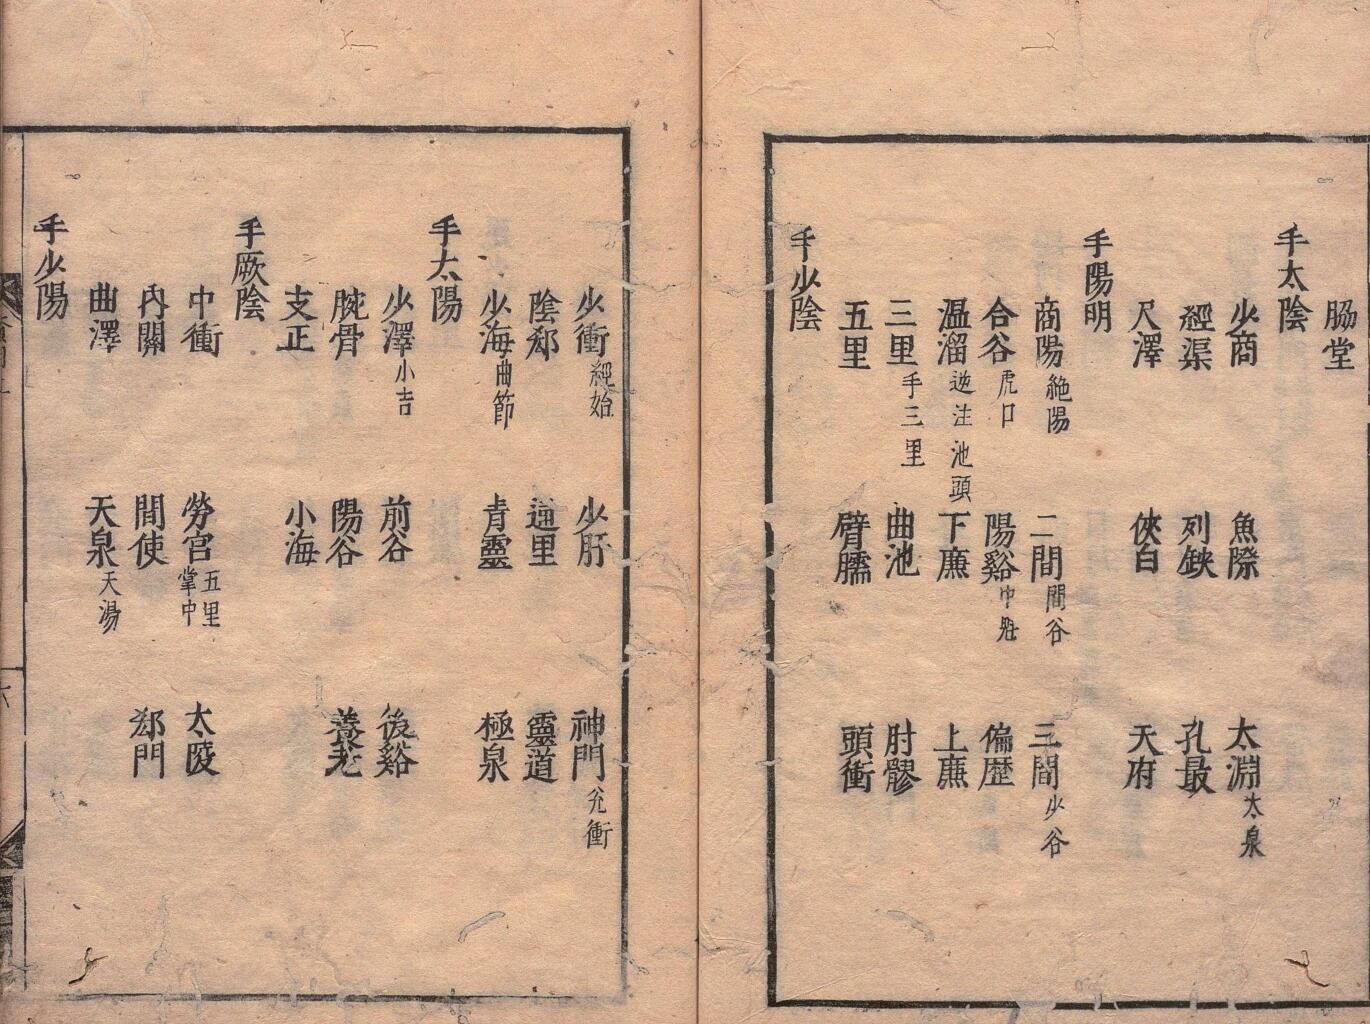 脇堂
手太陰
少商 魚際 太淵太泉
經渠 列鈌 孔最
尺澤 俠白 天府
手陽明
商陽絶陽 二間間谷 三間少谷
合谷虎口 陽谿中魁 偏歴
温溜逆注池頭 下廉 上廉
三里手三里 曲池 肘髎
五里 臂臑 頭衝
手少陰
少衝經始 少肝 神門兊衝
陰郄 通里 靈道
少海曲節 青靈 極泉
手太陽
少澤小吉 前谷 後谿
腕骨 陽谷 養老
支正 小海
手厥陰
中衝 勞宮五里掌中 太陵
內關 間使 郄門
曲澤 天泉天湯
手少陽
六